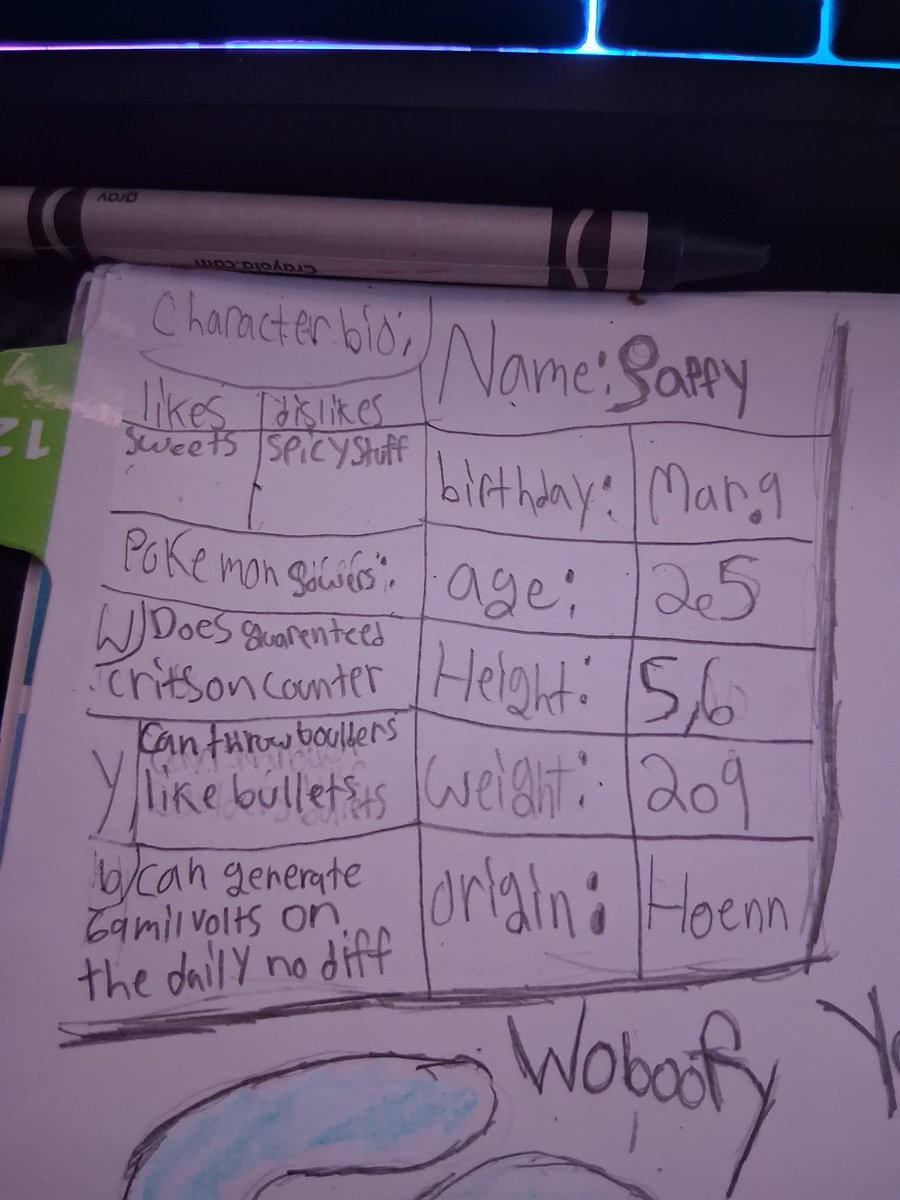 gray
crayola.com
12
Character bio;
likes
dislikes
sweets
spicy stuff
Pokemon powers:
W) Does guarenteed
critson counter
y
Can throw boulbers
like bullets
b) can generate
69 mil volts on
the daily no diff
Name: Saffy
birthday:
Mar. 9
age:
25
Height:
5,6
weight:
209
origin:
Hoenn
Woboofy